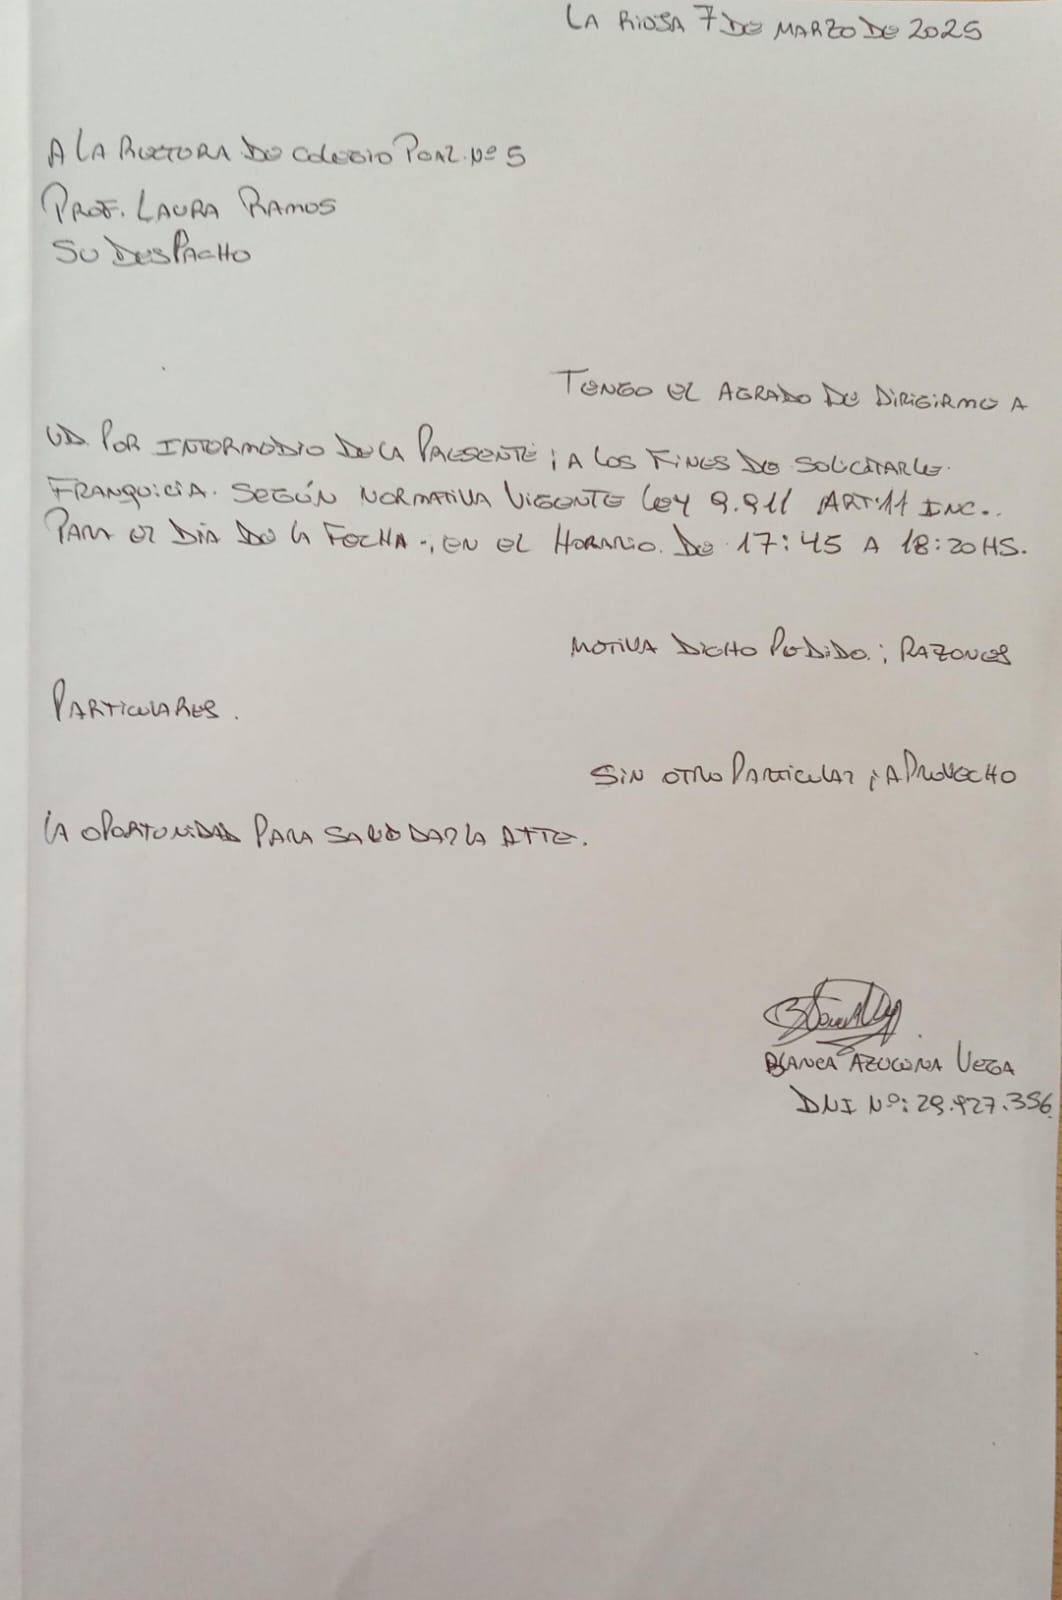 LA RIOJA 7 DE MARZO DE 2025
A LA RECTORA DE COLEGIO POAL. Nº 5
PROF. LAURA RAMOS
SU DESPACHO
TENGO EL AGRADO DE DIRIGIRME A
UD. POR INTERMEDIO DE LA PRESENTE ; A LOS FINES DE SOLICITARLE.
FRANQUICIA. SEGÚN NORMATIVA VIGENTE LEY 9.911 ART:11 INC..
PARA EL DÍA DE LA FECHA -, EN EL HORARIO. DE 17:45 A 18:20 HS.
MOTIVA DICHO PEDIDO. ; RAZONES
PARTICULARES .
SIN OTRO PARTICULAR ; APROVECHO
LA OPORTUNIDAD PARA SALUDARLA ATTE.
BLANCA AZUCENA VEGA
DNI Nº: 29.927.356